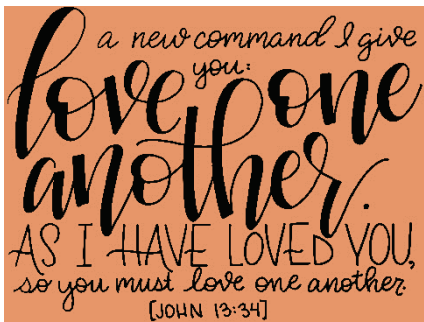 a new command I give
you:
love one
another.
AS I HAVE LOVED YOU,
so you must love one another.
[JOHN 13:34]